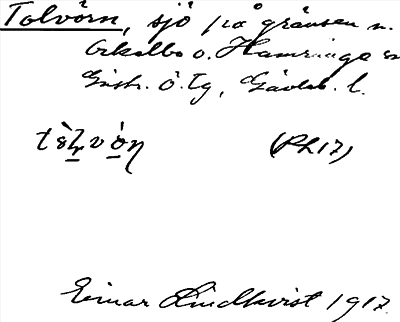 Tolvörn, sjö på gränsen m.
Ockelbo o. Hamrånge sn
Gästr. ö. tg, Gävleb. l.
(Ph17)
Einar Lindkvist 1917.